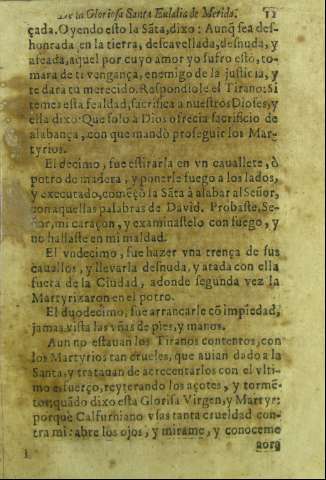 De la Gloriosa Santa Eulalia de Merida.
çada. Oyendo esto la Sãta, dixo: Aunq̃ sea des-
honrada en la tierra, descavellada, desnuda, y
afeada, aquel por cuyo amor yo sufro esto, to-
mara de ti vengança, enemigo de la justicia, y
te dara tu merecido. Respondiole el Tirano: Si
temes esta fealdad, sacrifica a nuestros Dioses, y
ella dixo: Que solo à Dios ofrecia sacrificio de
alabança, con que mandò proseguir los Mar-
tyrios.
El decimo, fue estirarla en vn cauallete, ò
potro de madera, y ponerle fuego a los lados,
y executado, començò la Sãta à alabar al Señor,
con aquellas palabras de David. Probaste, Se-
ñor, mi caraçon, y examinastelo con fuego, y
no hallaste en mi maldad.
El vndecimo, fue hazer vna trença de sus
cauallos, y llevarla desnuda, y atada con ella
fuera de la Ciudad, adonde segunda vez la
Martyrizaron en el potro.
El duodecimo, fue arrancarle cõ impiedad,
jamas vista las vñas de pies, y manos.
Aun no estauan los Tiranos contentos, con
los Martyrios tan crueles, que auian dado a la
Santa, y tratauan de acrecentarlos con el vlti-
mo esfuerço, reyterando los açotes, y tormẽ-
tos, quãdo dixo esta Glorisa Virgen, y Martyr:
porque Calfurniano vsas tanta crueldad con-
tra mi: abre los ojos, y mirame, y conoceme